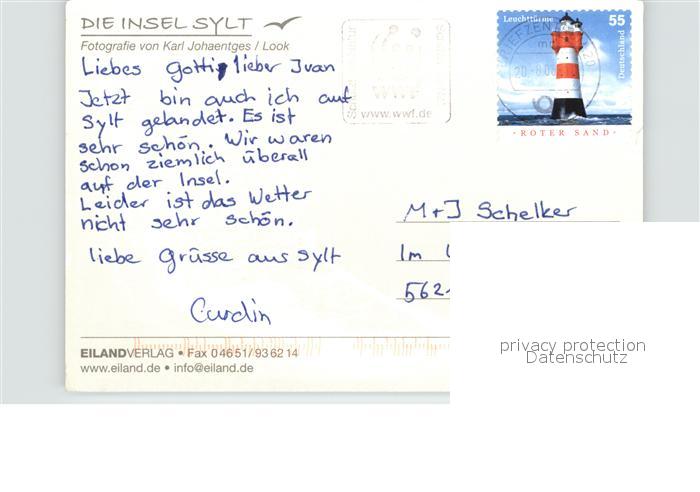 DIE INSEL SYLT
Fotografie von Karl Johaentges / Look
Liebes Gotti, lieber Ivan
Jetzt bin auch ich auf
Sylt gelandet. Es ist
sehr schön. Wir waren
schon ziemlich überall
auf der Insel.
Leider ist das Wetter
nicht sehr schön.
liebe Grüsse aus Sylt
Curdin
EILANDVERLAG • Fax 0 46 51 / 93 62 14
www.eiland.de • info@eiland.de
WWF
www.wwf.de
BRIEFZENTRUM
Leuchttürme 55
Deutschland
• ROTER SAND •
M+J Schelker
Im
562
privacy protection
Datenschutz